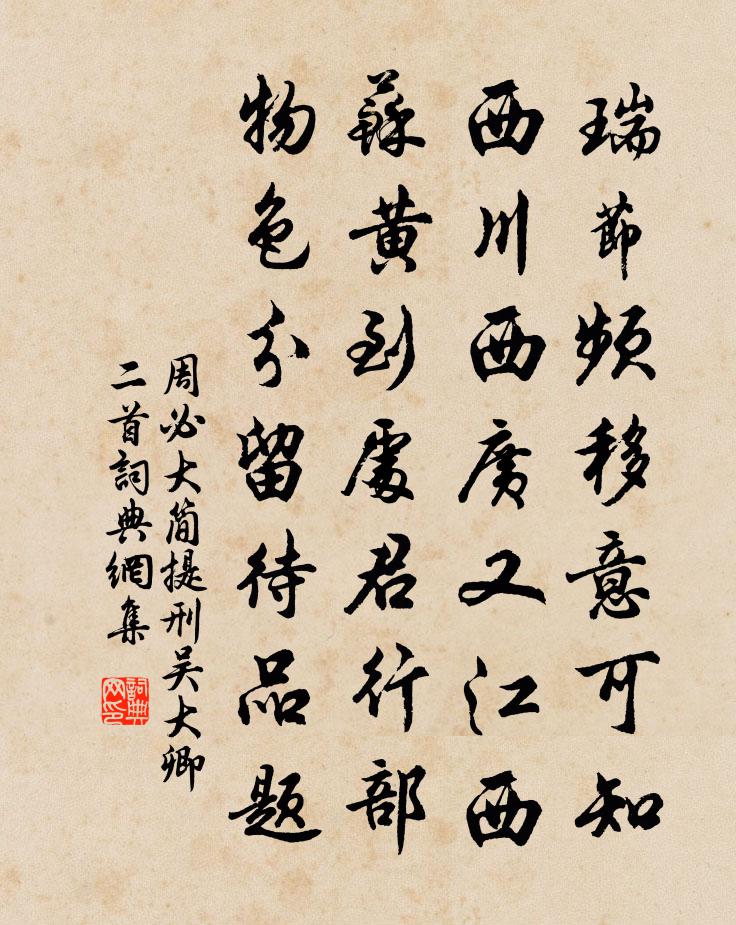 瑞節頻移意可知
西川西廣又江西
蘇黃到處君行部
物色分留待品題
周必大簡提刑吳大卿
二首詞典網集
詞典网印